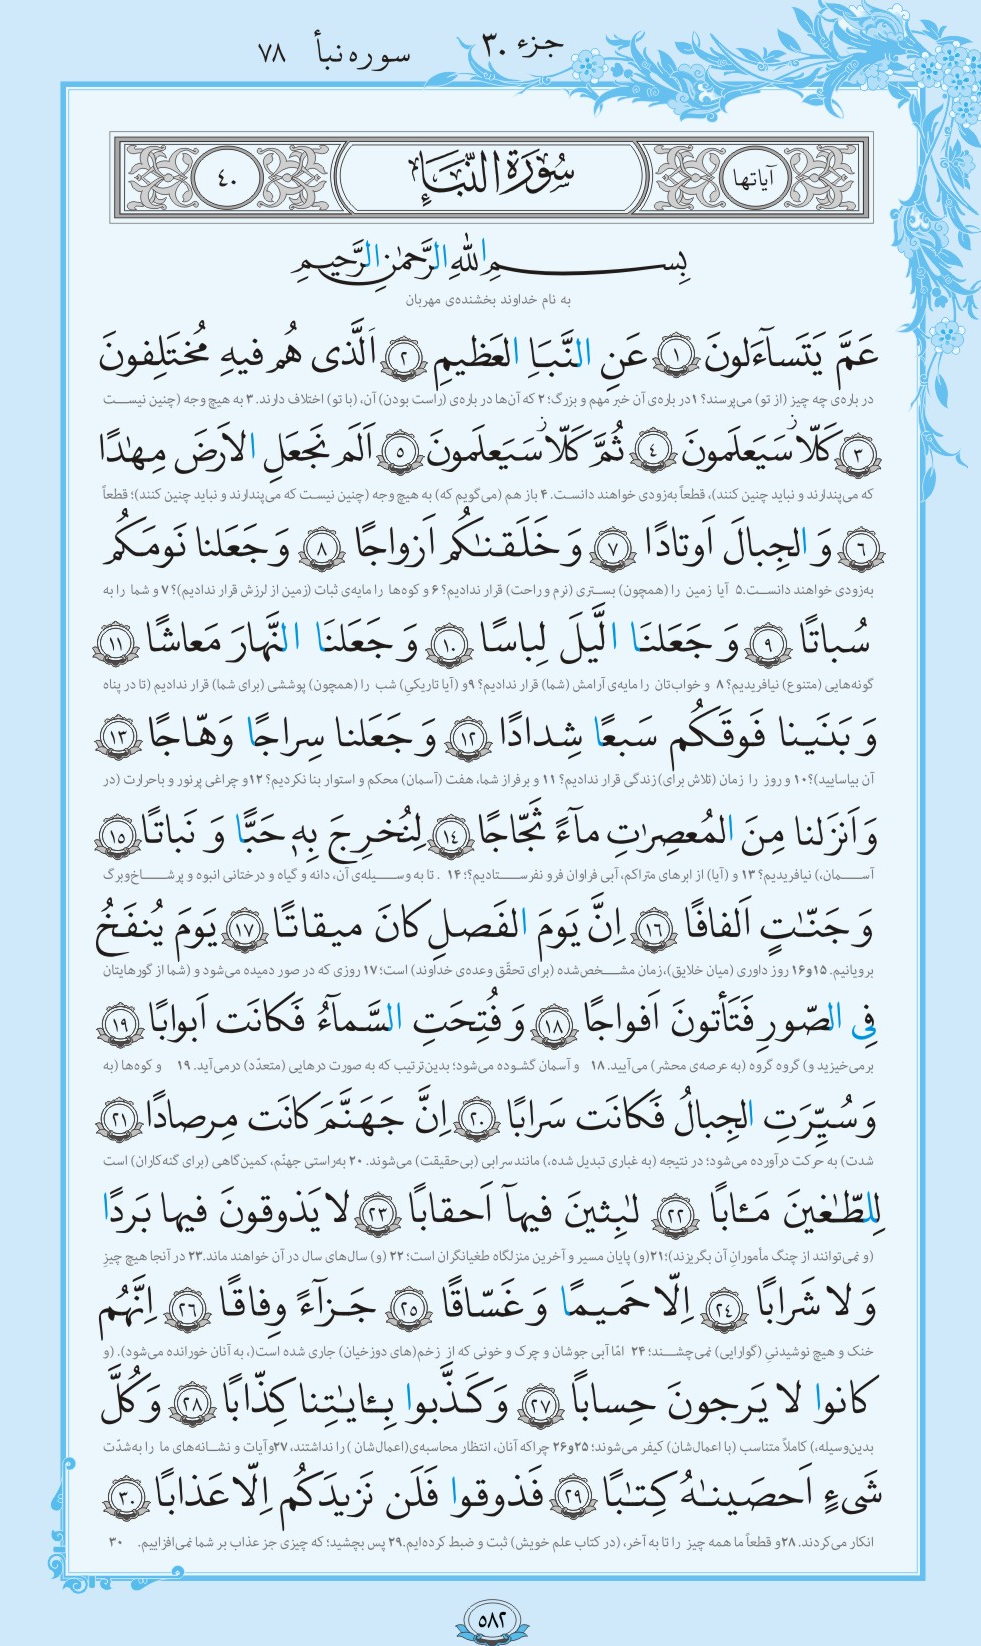 جزء ۳۰
سوره نبأ ۷۸
آیاتها
سُورَةُ النَّبَإِ
٤٠
بِسمِ اللهِ الرَّحمٰنِ الرَّحیمِ
به نام خداوند بخشنده‌ی مهربان
عَمَّ یَتَساءَلونَ ﴿١﴾ عَنِ النَّبَاِ العَظیمِ ﴿٢﴾ اَلَّذی هُم فیهِ مُختَلِفونَ
در باره‌ی چه چیز (از تو) می‌پرسند؟ ۱ در باره‌ی آن خبر مهم و بزرگ؛ ۲ که آن‌ها در باره‌ی (راست بودن) آن، (با تو) اختلاف دارند. ۳ به هیچ وجه (چنین نیست
﴿٣﴾ کَلّا سَیَعلَمونَ ﴿٤﴾ ثُمَّ کَلّا سَیَعلَمونَ ﴿٥﴾ اَلَم نَجعَلِ الاَرضَ مِهٰدًا
ز ز
که می‌پندارند و نباید چنین کنند)، قطعاً به‌زودی خواهند دانست. ۴ باز هم (می‌گویم که) به هیچ وجه (چنین نیست که می‌پندارند و نباید چنین کنند)؛ قطعاً
﴿٦﴾ وَ الجِبالَ اَوتادًا ﴿٧﴾ وَ خَلَقنٰکُم اَزواجًا ﴿٨﴾ وَ جَعَلنا نَومَکُم
به‌زودی خواهند دانست. ۵ آیا زمین را (همچون) بستری (نرم و راحت) قرار ندادیم؟ ۶ و کوه‌ها را مایه‌ی ثبات (زمین از لرزش قرار ندادیم)؟ ۷ و شما را به
سُباتًا ﴿٩﴾ وَ جَعَلنَا الَّیلَ لِباسًا ﴿١٠﴾ وَ جَعَلنَا النَّهارَ مَعاشًا ﴿١١﴾
گونه‌هایی (متنوع) نیافریدیم؟ ۸ و خواب‌تان را مایه‌ی آرامش (شما) قرار ندادیم؟ ۹ و (آیا تاریکیِ) شب را (همچون) پوششی (برای شما) قرار ندادیم (تا در پناه
وَ بَنَینا فَوقَکُم سَبعًا شِدادًا ﴿١٢﴾ وَ جَعَلنا سِراجًا وَهّاجًا ﴿١٣﴾
آن بیاسایید)؟ ۱۰ و روز را زمان (تلاش برای) زندگی قرار ندادیم؟ ۱۱ و بر فراز شما، هفت (آسمان) محکم و استوار بنا نکردیم؟ ۱۲ و چراغی پرنور و باحرارت (در
وَ اَنزَلنا مِنَ المُعصِرٰتِ ماءً ثَجّاجًا ﴿١٤﴾ لِنُخرِجَ بِهٖ حَبًّا وَ نَباتًا ﴿١٥﴾
آسمان،) نیافریدیم؟ ۱۳ و (آیا) از ابرهای متراکم، آبی فراوان فرو نفرستادیم؟؛ ۱۴ . تا به وسیله‌ی آن، دانه و گیاه و درختانی انبوه و پرشاخ‌وبرگ
وَ جَنّٰتٍ اَلفافًا ﴿١٦﴾ اِنَّ یَومَ الفَصلِ کانَ میقاتًا ﴿١٧﴾ یَومَ یُنفَخُ
برویانیم. ۱۵و۱۶ روز داوری (میان خلایق)، زمان مشخص‌شده (برای تحقّق وعده‌ی خداوند) است؛ ۱۷ روزی که در صور دمیده می‌شود و (شما از گورهایتان
فِی الصّورِ فَتَأتونَ اَفواجًا ﴿١٨﴾ وَ فُتِحَتِ السَّماءُ فَکانَت اَبوابًا ﴿١٩﴾
برمی‌خیزید و) گروه گروه (به عرصه‌ی محشر) می‌آیید. ۱۸ و آسمان گشوده می‌شود؛ بدین‌ترتیب که به صورت درهایی (متعدّد) درمی‌آید. ۱۹ و کوه‌ها (به
وَ سُیِّرَتِ الجِبالُ فَکانَت سَرابًا ﴿٢٠﴾ اِنَّ جَهَنَّمَ کانَت مِرصادًا ﴿٢١﴾
شدت) به حرکت درآورده می‌شود؛ در نتیجه (به غباری تبدیل شده،) مانند سرابی (بی‌حقیقت) می‌شوند. ۲۰ به‌راستی جهنّم، کمین‌گاهی (برای گنه‌کاران) است
لِلطّٰغینَ مَـٔابًا ﴿٢٢﴾ لٰبِثینَ فیها اَحقابًا ﴿٢٣﴾ لا یَذوقونَ فیها بَردًا
(و نمی‌توانند از چنگ مأمورانِ آن بگریزند)؛ ۲۱ (و) پایان مسیر و آخرین منزلگاه طغیانگران است؛ ۲۲ (و) سال‌های سال در آن خواهند ماند. ۲۳ در آنجا هیچ چیزِ
وَ لا شَرابًا ﴿٢٤﴾ اِلّا حَمیمًا وَ غَسّاقًا ﴿٢٥﴾ جَزاءً وِفاقًا ﴿٢٦﴾ اِنَّهُم
خنک و هیچ نوشیدنیِ (گوارایی) نمی‌چشند؛ ۲۴ امّا آبی جوشان و چرک و خونی که از زخم(های دوزخیان) جاری شده است(، به آنان خورانده می‌شود). (و
کانوا لا یَرجونَ حِسابًا ﴿٢٧﴾ وَ کَذَّبوا بِـٔایٰتِنا کِذّابًا ﴿٢٨﴾ وَ کُلَّ
بدین‌وسیله،) کاملاً متناسب (با اعمال‌شان) کیفر می‌شوند؛ ۲۵و۲۶ چراکه آنان، انتظار محاسبه‌ی (اعمال‌شان) را نداشتند، ۲۷ و آیات و نشانه‌های ما را به‌شدّت
شَیءٍ اَحصَینٰهُ کِتٰبًا ﴿٢٩﴾ فَذوقوا فَلَن نَزیدَکُم اِلّا عَذابًا ﴿٣٠﴾
انکار می‌کردند. ۲۸ و قطعاً ما همه چیز را تا به آخر، (در کتاب علم خویش) ثبت و ضبط کرده‌ایم. ۲۹ پس بچشید؛ که چیزی جز عذاب بر شما نمی‌افزاییم. ۳۰
۵۸۲